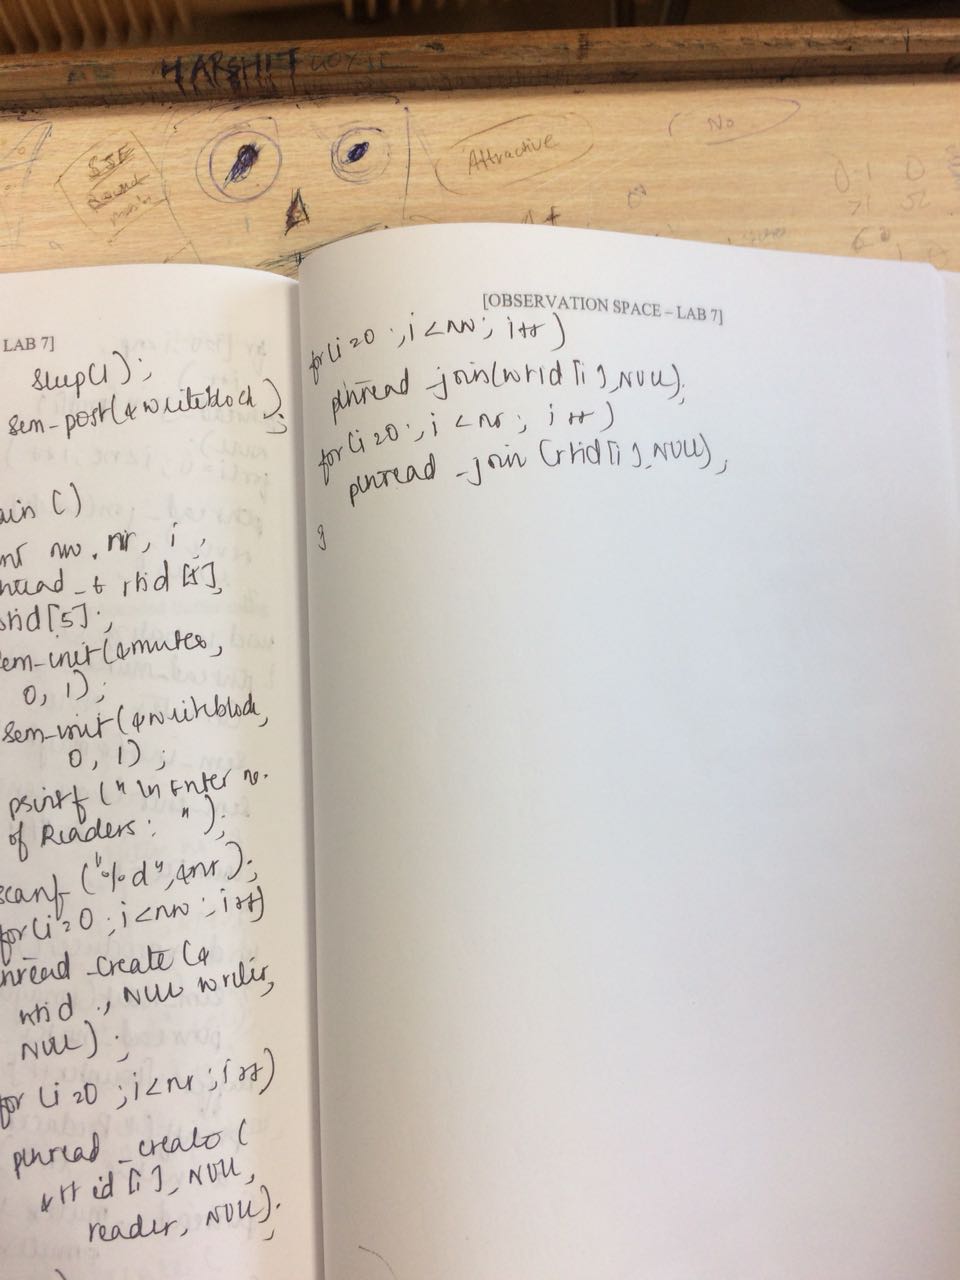 HARSHIT GOYAL
SJF
Round
Attractive
No
LAB 7]
sleep(1);
sem_post(&writeblock);
ain ()
nt nw, nr, i,
hread_t rtid [5],
tid[5];
em_init(&mutex,
0, 1);
sem_init(&writeblock,
0, 1);
printf ("\n Enter no.
of Readers: ");
scanf ("%d", &nr);
for(i=0; i<nw; i++)
hread_create (&
wtid , NULL writer,
NULL);
for (i=0; i<nr; i++)
pthread_create (
&rtid[i], NULL,
reader, NULL);
[OBSERVATION SPACE – LAB 7]
for(i=0; i<nw; i++)
pthread_join(wtid[i], NULL);
for(i=0; i<nr; i++)
pthread_join (rtid[i], NULL);
}